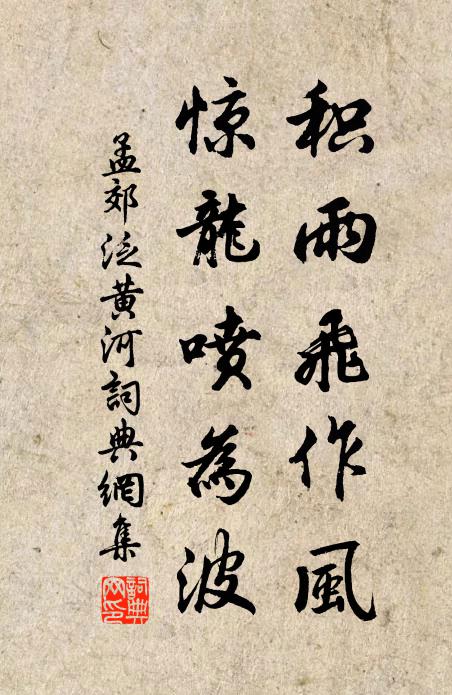 积雨飛作風
惊龍噴為波
孟郊泛黄河詞典網集
詞典網印